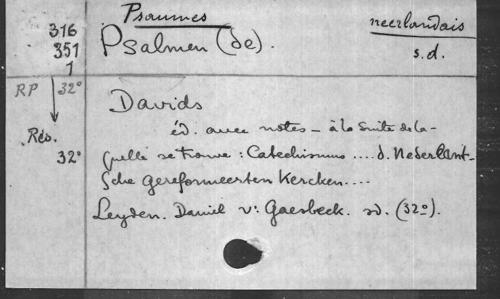 Psaumes
neerlandais
316
351
1
Psalmen (de).
s.d.
RP 32°
Davids
éd. avec notes – à la suite de la-
quelle se trouve : Catechismus .... d. Nederlant-
Rés.
32°
sche gereformeerten Kercken....
Leyden. Daniel v: Gaesbeck. sd. (32°).